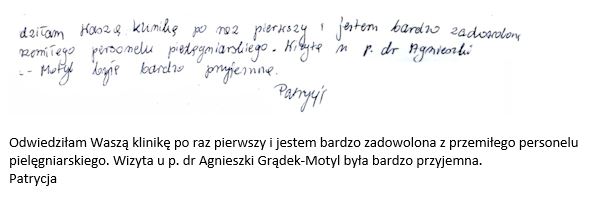 dziłam Waszą klinikę po raz pierwszy i jestem bardzo zadowolona
rzemiłego personelu pielęgniarskiego. Wizyta u p. dr Agnieszki
-- Motyl była bardzo przyjemna.
Patrycj
Odwiedziłam Waszą klinikę po raz pierwszy i jestem bardzo zadowolona z przemiłego personelu
pielęgniarskiego. Wizyta u p. dr Agnieszki Grądek-Motyl była bardzo przyjemna.
Patrycja